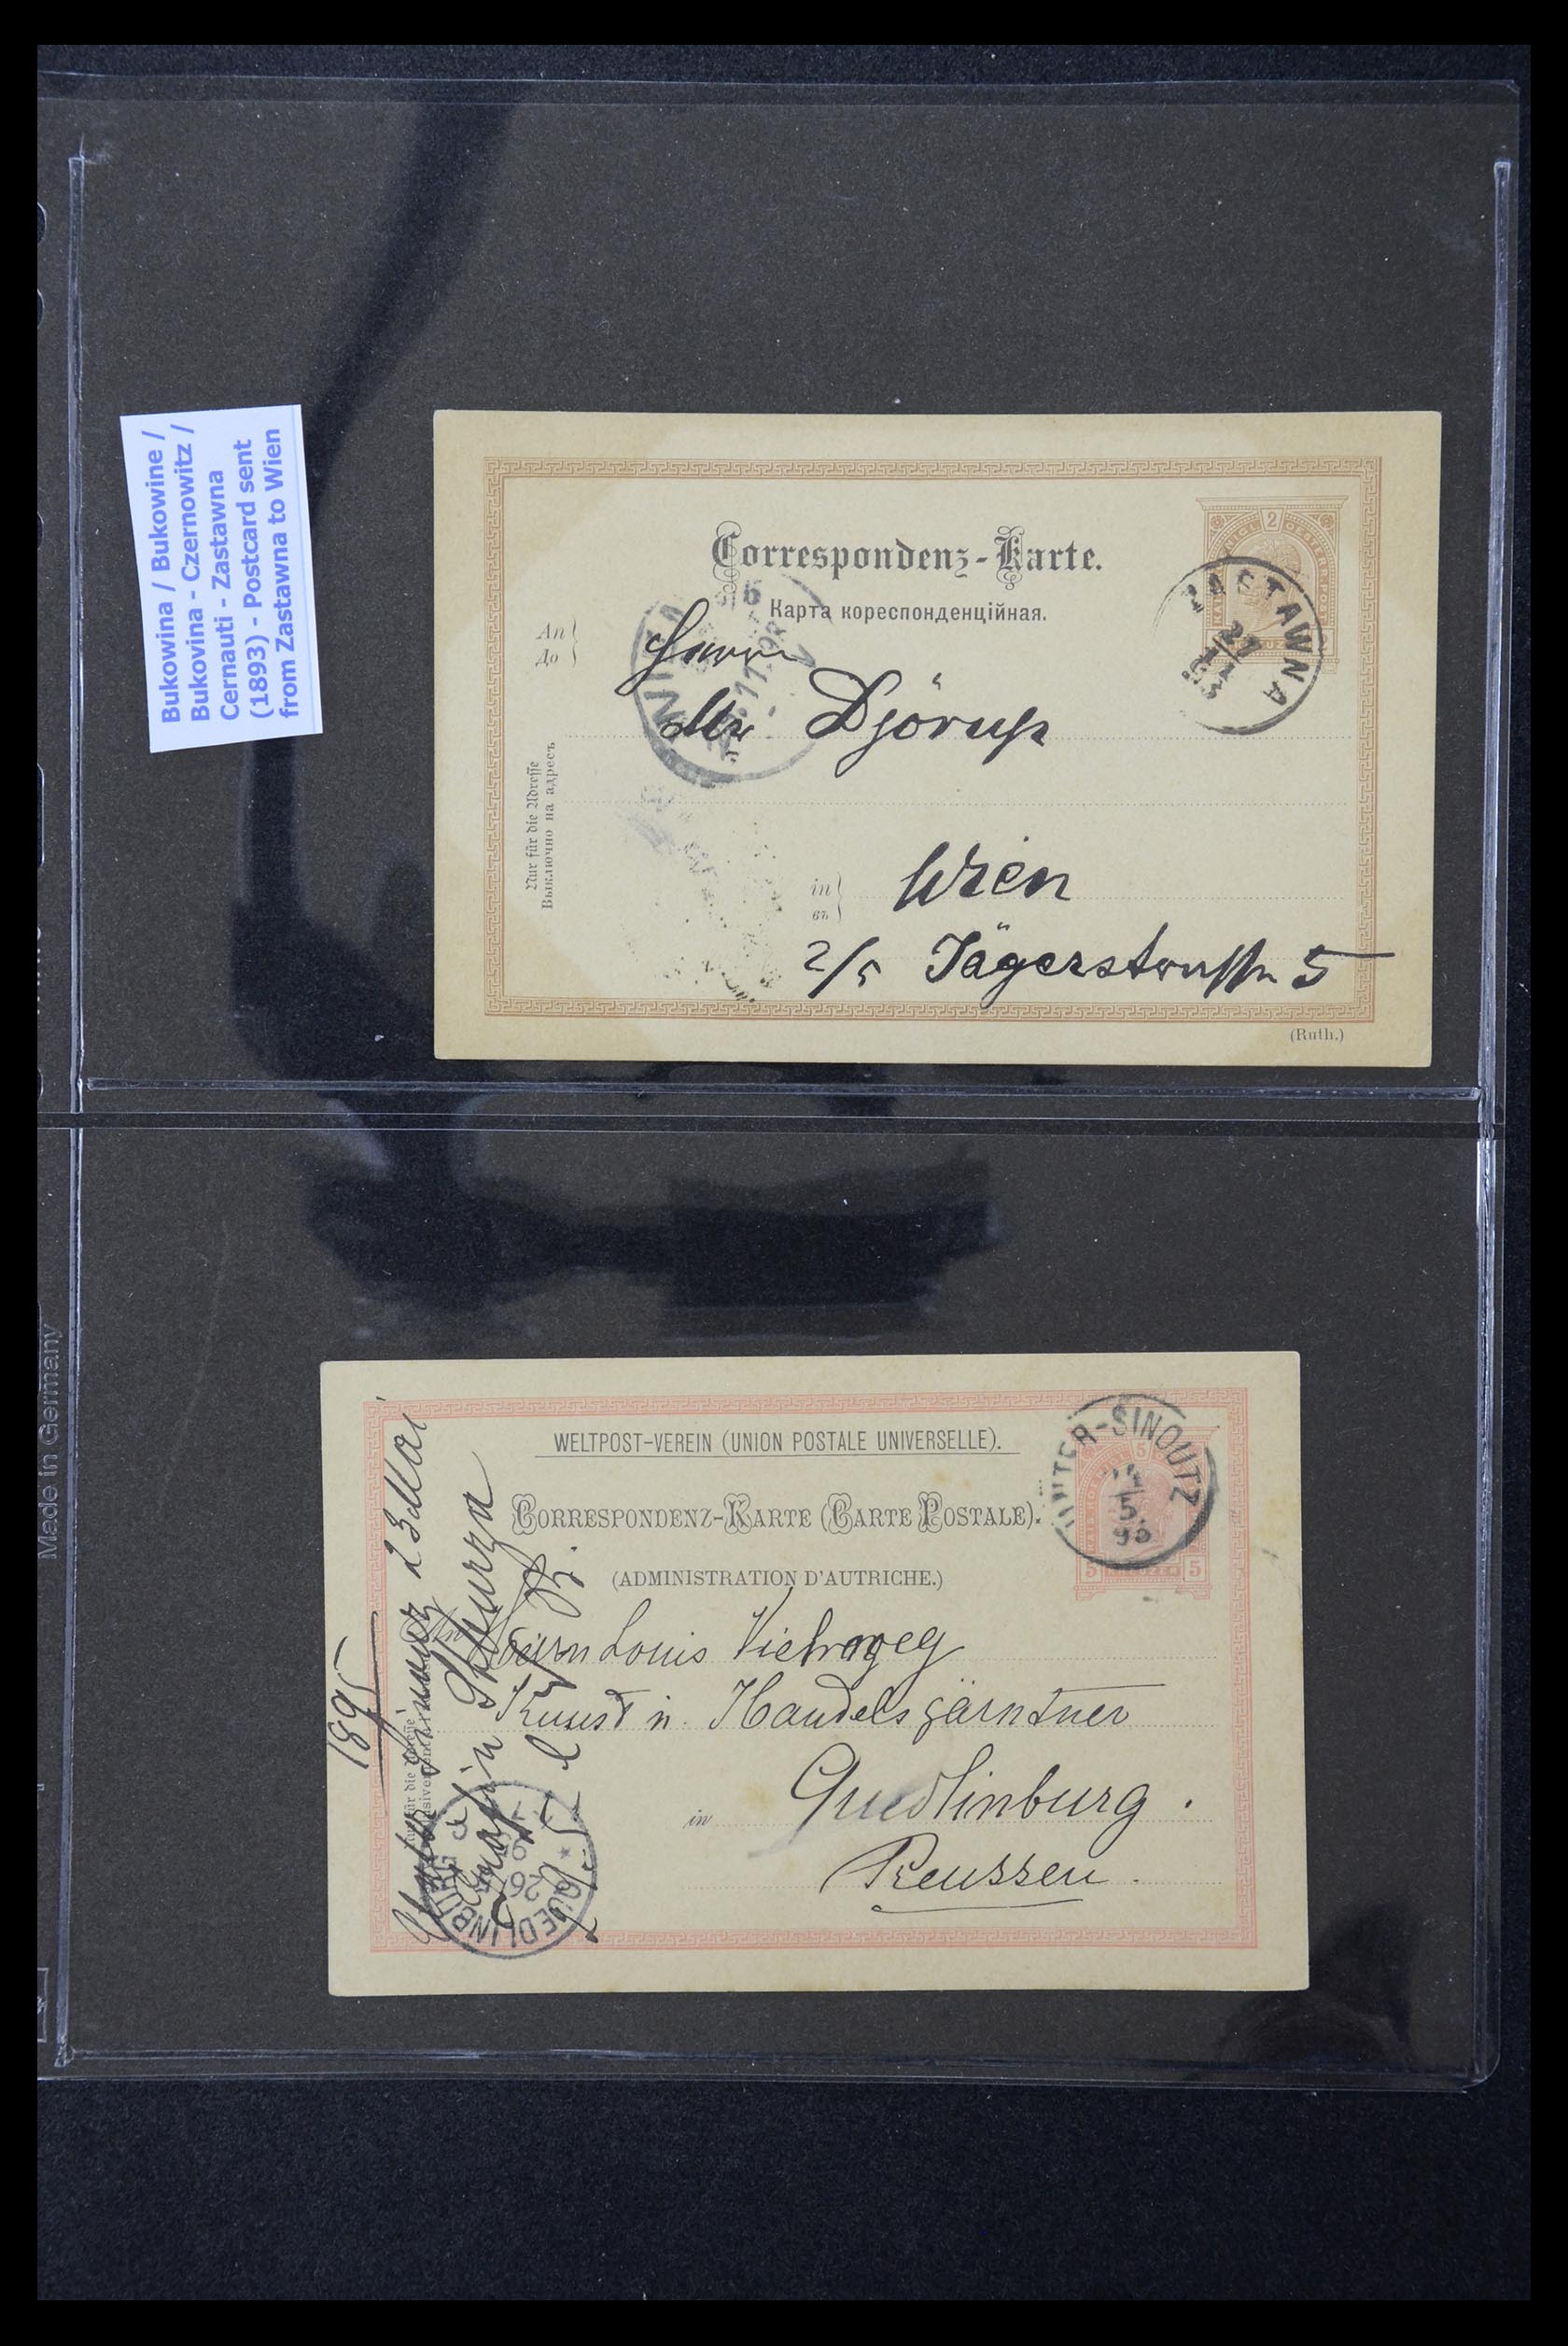 Bukowina / Bukowine /
Bukovina - Czernowitz /
Cernauti - Zastawna
(1893) - Postcard sent
from Zastawna to Wien
Correspondenz-Karte.
Карта кореспонденційная.
2
ZASTAWNA
27
An
До
Herrn
Djörup
WIEN
Nur für die Adresse
Выключно на адресъ
in
въ
Wien
2/5 Jägerstrasse 5
(Ruth.)
Made in Germany
WELTPOST-VEREIN (UNION POSTALE UNIVERSELLE).
CORRESPONDENZ-KARTE (CARTE POSTALE).
(ADMINISTRATION D'AUTRICHE.)
UNTER-SINOUTZ
5
5 5
An
Herrn Louis Viehweg
Kunst u. Handelsgärtner
in Quedlinburg.
Preussen.
1895
23 Mai
Sthurza
QUEDLINBURG
26